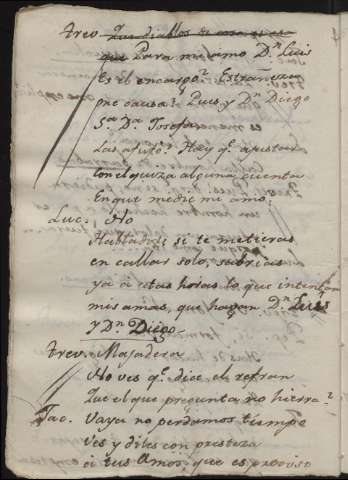 Trev. Que diablos de
que Para mi amo Dn. Luis
Es el encargo? Estrañeza
me causa? Pues, y Dn Diego
Sa. Da. Josefa
Las asusto? Hay q. apostar
con el quiza alguna cuenta
En que medre mi amo.
Luc. No
Habladr. si te metieras
en callar solo, sabrias
ya á estas horas lo que intentan
mis amas, que hagan Dn. Luis
y Dn. Diego.
Trev. Majadera
No ves q. dice el refran
Que el que pregunta no hierra?
Jac. Vaya no perdamos tiempo
ves y diles con presteza
á tus Amos, que es preciso